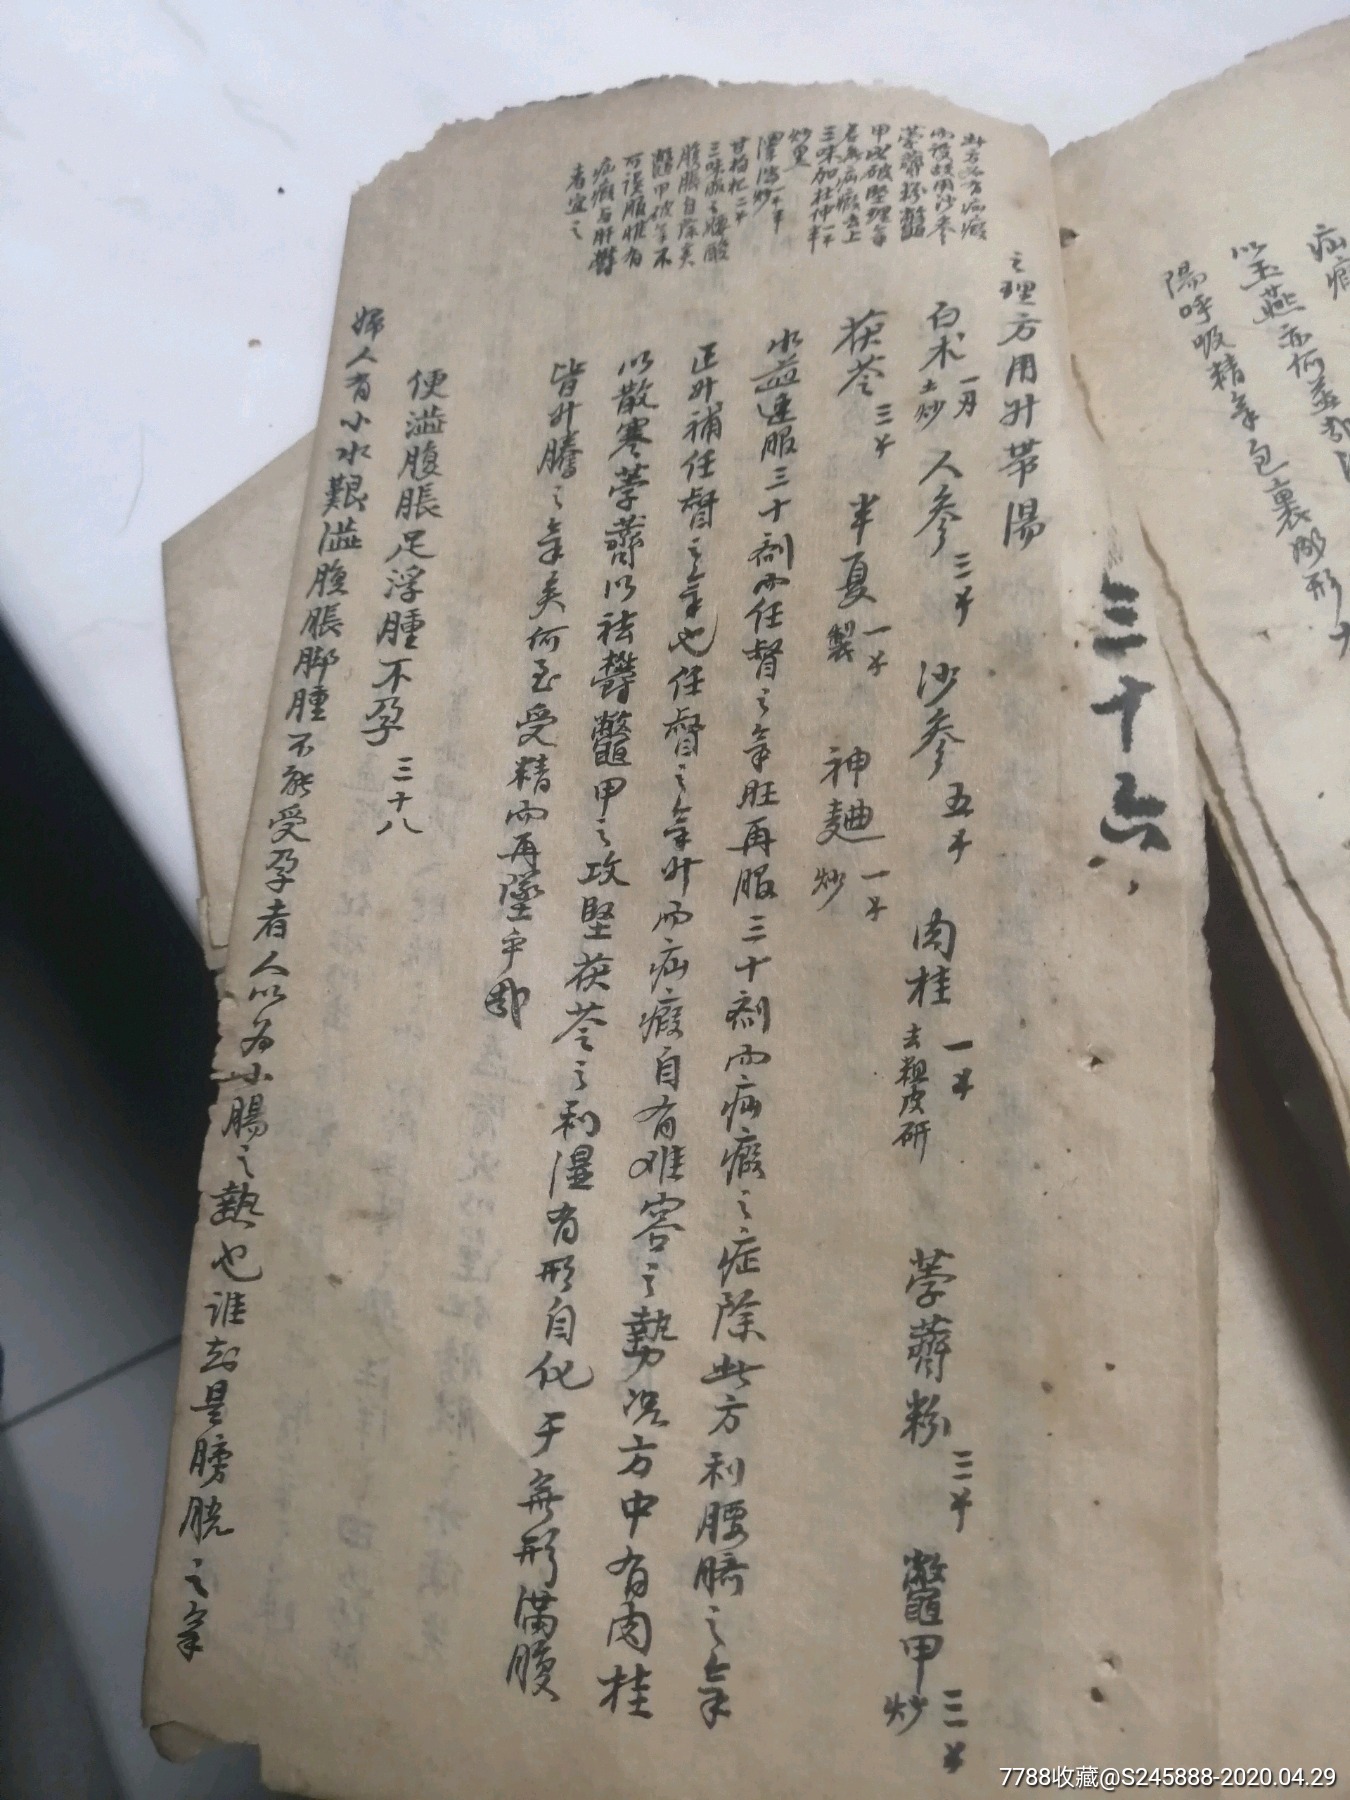 疝瘕
以玉燕亦何益哉
陽呼吸精氣包裹形
三十六
此方為有疝瘕
而設故用沙參
荸薺粉鱉
甲以破堅理氣
若無疝瘕去上
三味加杜仲一半
炒黑
澤瀉一半炒
甘枸杞二
三味服之腰酸
腹脹自除矣
鱉甲破氣不
可誤服惟有
疝瘕与肝鬱
者宜之
之理方用升帶湯
白朮一刄土炒 人參三 沙參五 肉桂一去粗皮研 荸薺粉三 鱉甲三炒
茯苓三 半夏一製 神麯一炒
水益連服三十劑而任督之氣旺再服三十劑而疝瘕之症除此方利腰臍之氣
正升補任督之氣也任督之氣升而疝瘕自有难容之勢况方中有肉桂
以散寒荸薺以祛鬱鱉甲之攻堅茯苓之利濕有形自化于無形滿腹
皆升騰之氣矣何至受精而再墜乎哉
便澁腹脹足浮腫不孕 三十八
婦人有小水艱澁腹脹脚腫不能受孕者人以为小腸之熱也谁知是膀胱之氣
7788收藏@S245888-2020.04.29